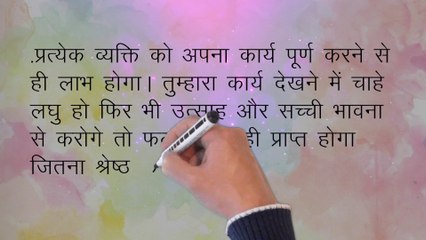 .प्रत्येक व्यक्ति को अपना कार्य पूर्ण करने से
ही लाभ होगा। तुम्हारा कार्य देखने में चाहे
लघु हो फिर भी उत्साह और सच्ची भावना
से करोगे तो ही प्राप्त होगा
जितना श्रेष्ठ